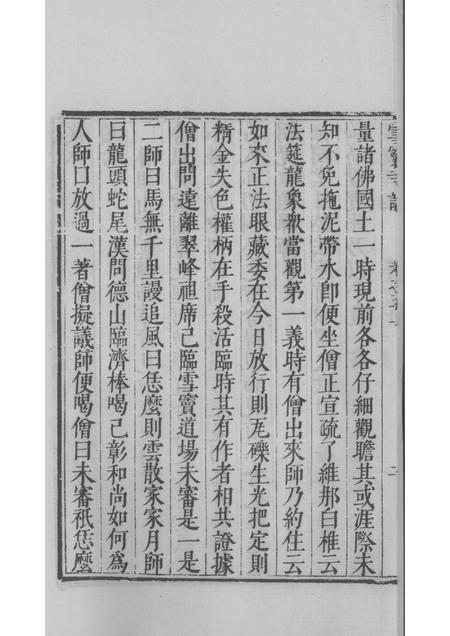 量諸佛國土一時現前各各仔細觀瞻其或涯際未
知不免拖泥帶水即便坐僧正宣疏了維那白椎云
法筵龍象衆當觀第一義時有僧出來師乃約住云
如來正法眼藏委在今日放行則瓦礫生光把定則
精金失色權柄在手殺活臨時其有作者相共證據
僧出問遠離翠峰祖席已臨雪竇道場未審是一是
二師曰馬無千里謾追風曰恁麼則雲散家家月師
曰龍頭蛇尾漢問德山臨濟棒喝已彰和尚如何為
人師曰放過一著僧擬議師便喝僧曰未審祇恁麼